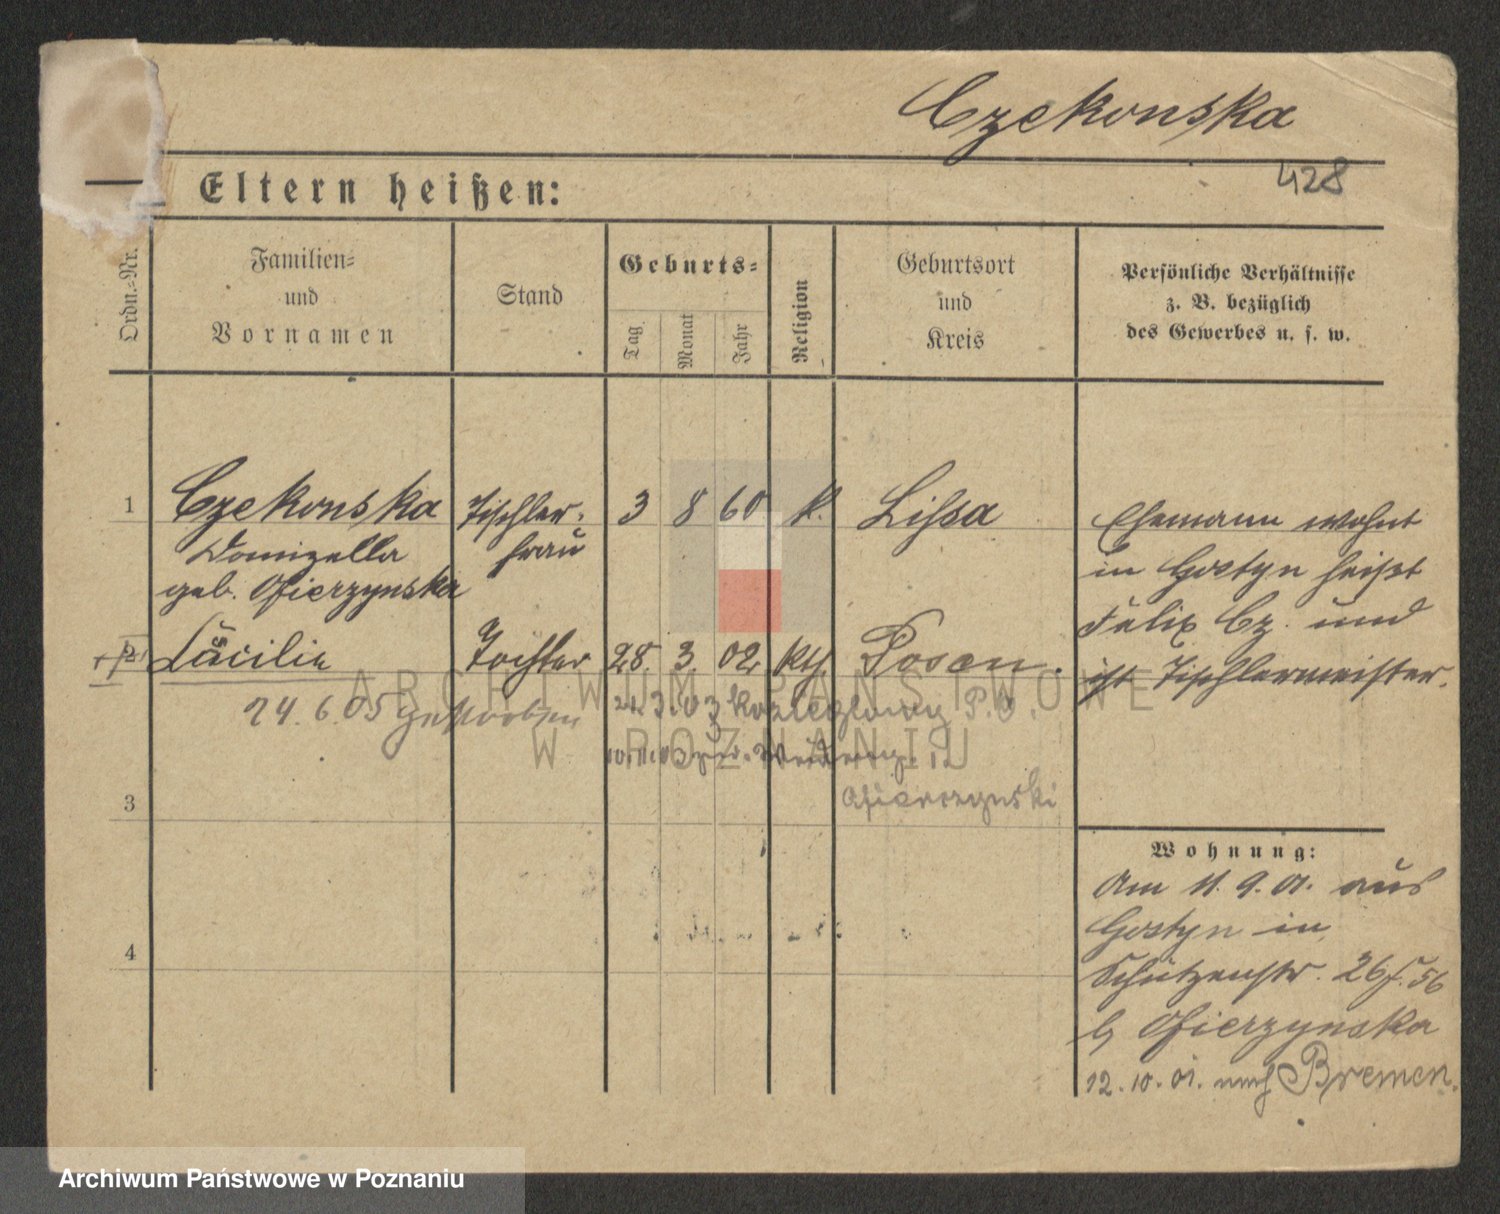 Czekonska
428
Eltern heißen:
Ordn.-Nr.
Familien-
und
Vornamen
Stand
Geburts-
Tag
Monat
Jahr
Religion
Geburtsort
und
Kreis
Persönliche Verhältnisse
z. B. bezüglich
des Gewerbes u. s. w.
1 Czekonska Tischler- 3 8 60 k. Lissa
Domizella frau
geb. Ofierzynska
Ehemann wohnt
in Gostyn heißt
Felix Cz. und
ist Tischlermeister.
2 Cäcilie Tochter 28. 3. 02 kth. Posen.
24. 6. 05 gestorben
3
Ofierzynski
4
Wohnung:
Am 11. 9. 01. aus
Gostyn in
Schützenstr. 26
b/ Ofierzynska
12. 10. 01. nach Bremen.
ARCHIWUM PAŃSTWOWE
W POZNANIU
Archiwum Państwowe w Poznaniu